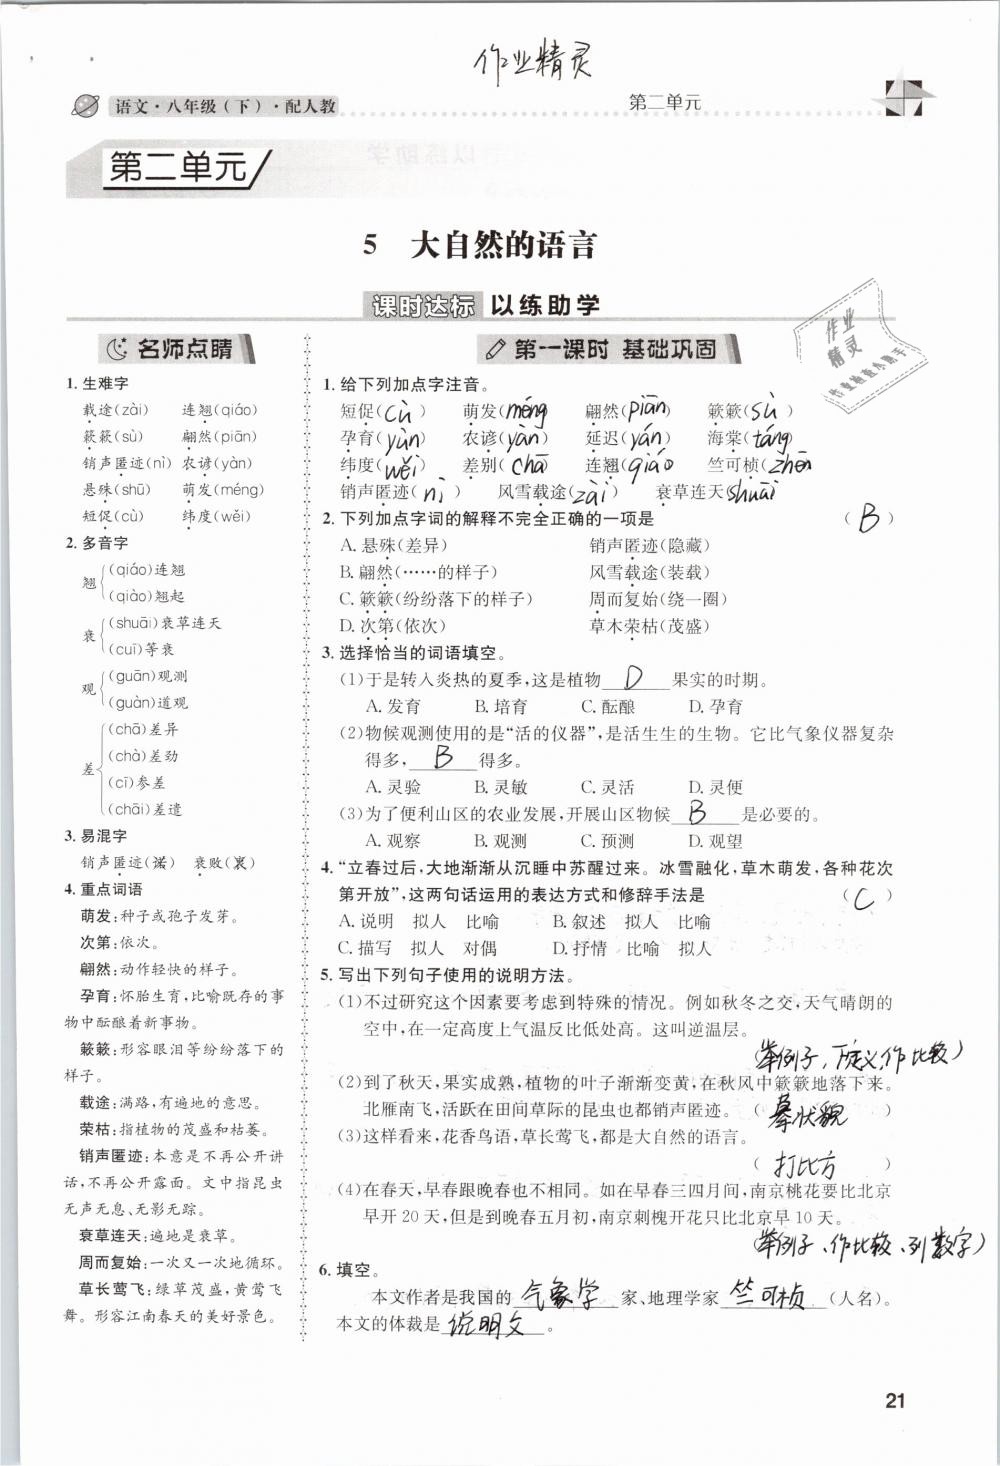 作业精灵
语文·八年级（下）·配人教
第二单元
第二单元
5 大自然的语言
课时达标 以练助学
作业
精灵
名师点睛
1. 生难字
载途(zài) 连翘(qiáo)
簌簌(sù) 翩然(piān)
销声匿迹(nì) 农谚(yàn)
悬殊(shū) 萌发(méng)
短促(cù) 纬度(wěi)
2. 多音字
翘
(qiáo)连翘
(qiào)翘起
衰
(shuāi)衰草连天
(cuī)等衰
观
(guān)观测
(guàn)道观
差
(chā)差异
(chà)差劲
(cī)参差
(chāi)差遣
3. 易混字
销声匿迹(诺) 衰败(衷)
4. 重点词语
萌发:种子或孢子发芽。
次第:依次。
翩然:动作轻快的样子。
孕育:怀胎生育,比喻既存的事
物中酝酿着新事物。
簌簌:形容眼泪等纷纷落下的
样子。
载途:满路,有遍地的意思。
荣枯:指植物的茂盛和枯萎。
销声匿迹:本意是不再公开讲
话,不再公开露面。文中指昆虫
无声无息、无影无踪。
衰草连天:遍地是衰草。
周而复始:一次又一次地循环。
草长莺飞:绿草茂盛,黄莺飞
舞。形容江南春天的美好景色。
第一课时 基础巩固
1. 给下列加点字注音。
短促(cù) 萌发(méng) 翩然(piān) 簌簌(sù)
孕育(yùn) 农谚(yàn) 延迟(yán) 海棠(táng)
纬度(wěi) 差别(chā) 连翘(qiáo 竺可桢(zhēn
销声匿迹(nì) 风雪载途(zài) 衰草连天(shuāi
2. 下列加点字词的解释不完全正确的一项是 (B)
A. 悬殊(差异) 销声匿迹(隐藏)
B. 翩然(……的样子) 风雪载途(装载)
C. 簌簌(纷纷落下的样子) 周而复始(绕一圈)
D. 次第(依次) 草木荣枯(茂盛)
3. 选择恰当的词语填空。
(1)于是转入炎热的夏季,这是植物 D 果实的时期。
A. 发育 B. 培育 C. 酝酿 D. 孕育
(2)物候观测使用的是“活的仪器”,是活生生的生物。它比气象仪器复杂
得多, B 得多。
A. 灵验 B. 灵敏 C. 灵活 D. 灵便
(3)为了便利山区的农业发展,开展山区物候 B 是必要的。
A. 观察 B. 观测 C. 预测 D. 观望
4. “立春过后,大地渐渐从沉睡中苏醒过来。冰雪融化,草木萌发,各种花次
第开放”,这两句话运用的表达方式和修辞手法是 (C)
A. 说明 拟人 比喻 B. 叙述 拟人 比喻
C. 描写 拟人 对偶 D. 抒情 比喻 拟人
5. 写出下列句子使用的说明方法。
(1)不过研究这个因素要考虑到特殊的情况。例如秋冬之交,天气晴朗的
空中,在一定高度上气温反比低处高。这叫逆温层。
(举例子、下定义、作比较)
(2)到了秋天,果实成熟,植物的叶子渐渐变黄,在秋风中簌簌地落下来。
北雁南飞,活跃在田间草际的昆虫也都销声匿迹。(摹状貌)
(3)这样看来,花香鸟语,草长莺飞,都是大自然的语言。
(打比方)
(4)在春天,早春跟晚春也不相同。如在早春三四月间,南京桃花要比北京
早开20天,但是到晚春五月初,南京刺槐开花只比北京早10天。
(举例子、作比较、列数字)
6. 填空。
本文作者是我国的 气象学 家、地理学家 竺可桢 (人名)。
本文的体裁是 说明文 。
21